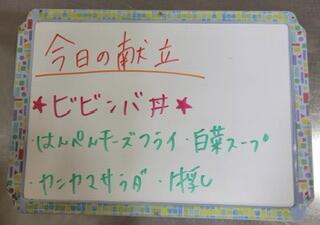 今日の献立
★ビビンバ丼★
・はんぺんチーズフライ・白菜スープ
・ヤンヤマサラダ・